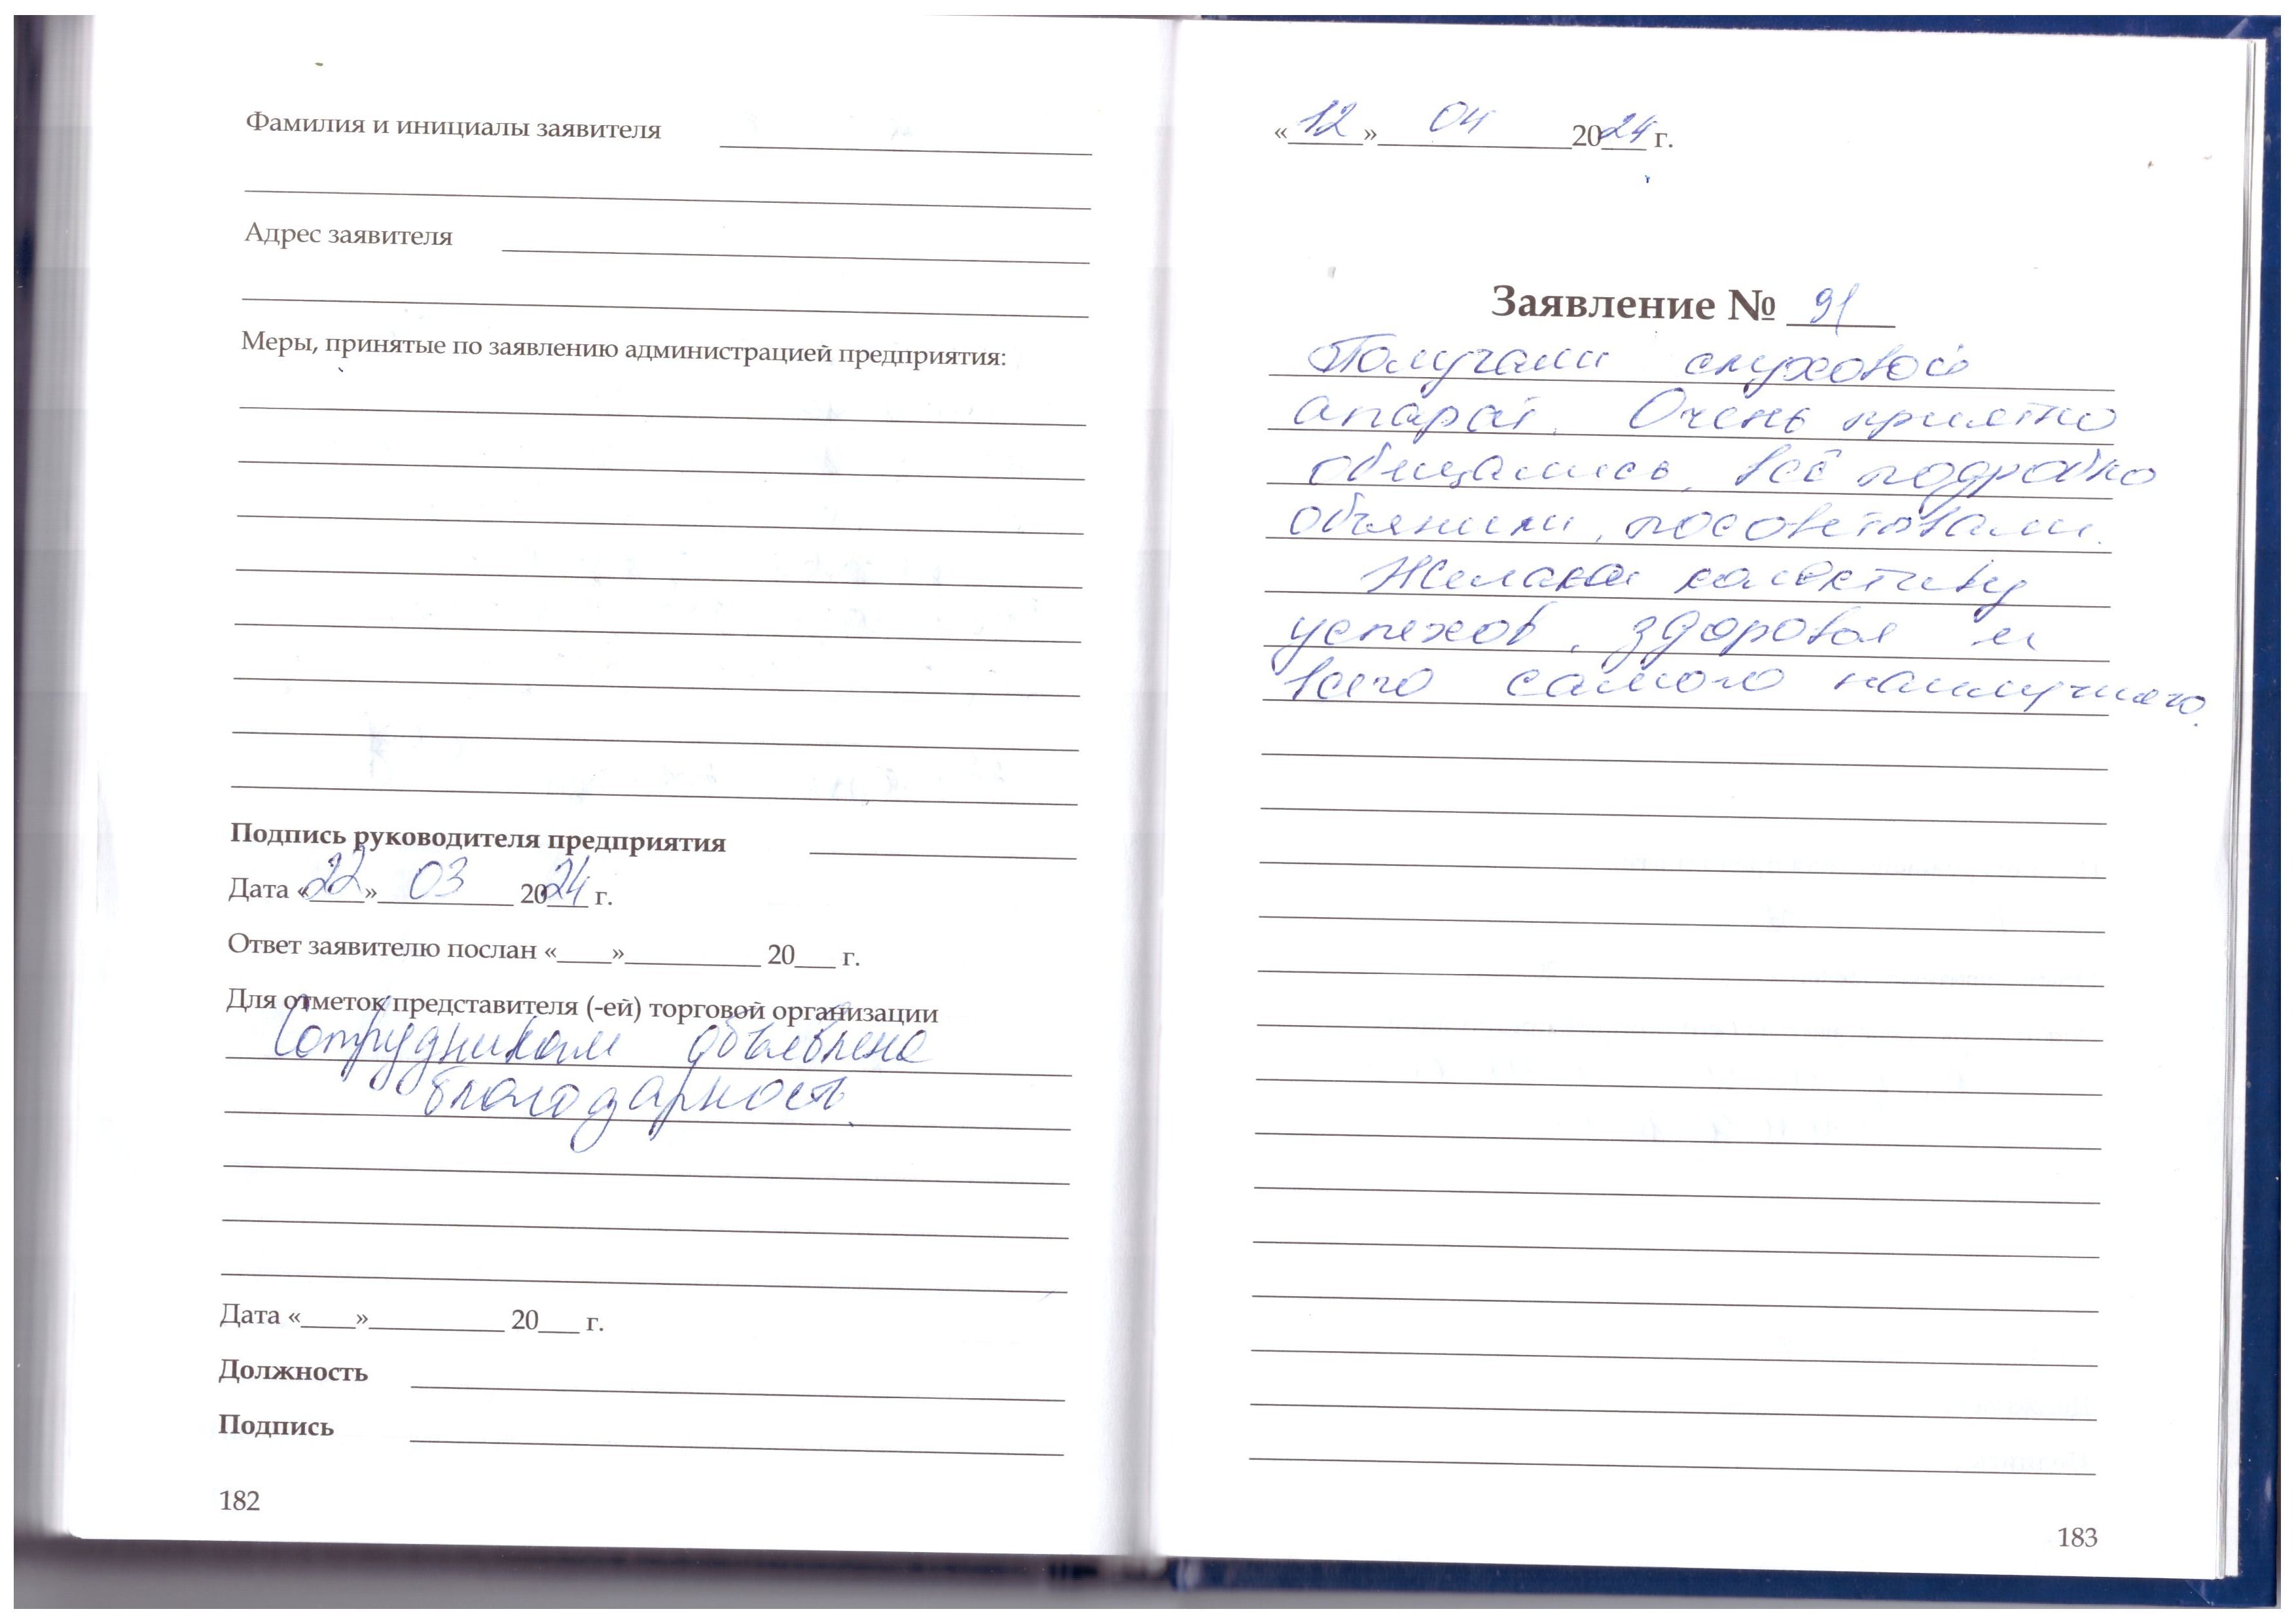 Фамилия и инициалы заявителя
Адрес заявителя
Меры, принятые по заявлению администрацией предприятия:
Подпись руководителя предприятия
Дата «22» 03 2024 г.
Ответ заявителю послан «____»__________ 20___ г.
Для отметок представителя (-ей) торговой организации
Сотрудникам объявлена
благодарность.
Дата «____»__________ 20___ г.
Должность
Подпись
182
«12» 04 2024 г.
Заявление № 91
Получали слуховой
апарат. Очень приятно
общались, всё подробно
объяснили, посоветовали.
Желаем колективу
успехов, здоровья и
всего самого наилучшего.
183